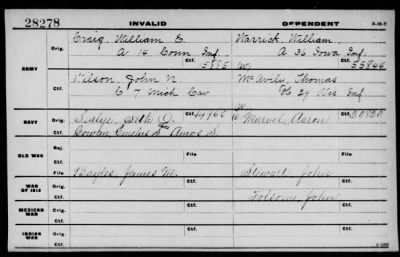 28278 INVALID DEPENDENT 3-312
ARMY
Orig. Craig, William E. Warrick, William
A 14 Conn Inf. A 36 Iowa Inf.
Ctf. 5895 W. 55844
Orig. Wilson, John N. McAvily, Thomas
C 7 Mich Cav 29 Wis Inf
Ctf. W
NAVY
Orig. Seth O. Ctf. 4965 Marvel, Aaron Ctf. 20820
Cowan, Amos S.
OLD WAR
Rej.
Ctf. File File
WAR OF 1812
Orig. Bayles, James M. Stewart, John
Ctf. Ctf. Folsom, John Ctf.
MEXICAN WAR
Orig. Ctf. Ctf.
Ctf.
INDIAN WAR
Orig. Ctf. Ctf.
Ctf.